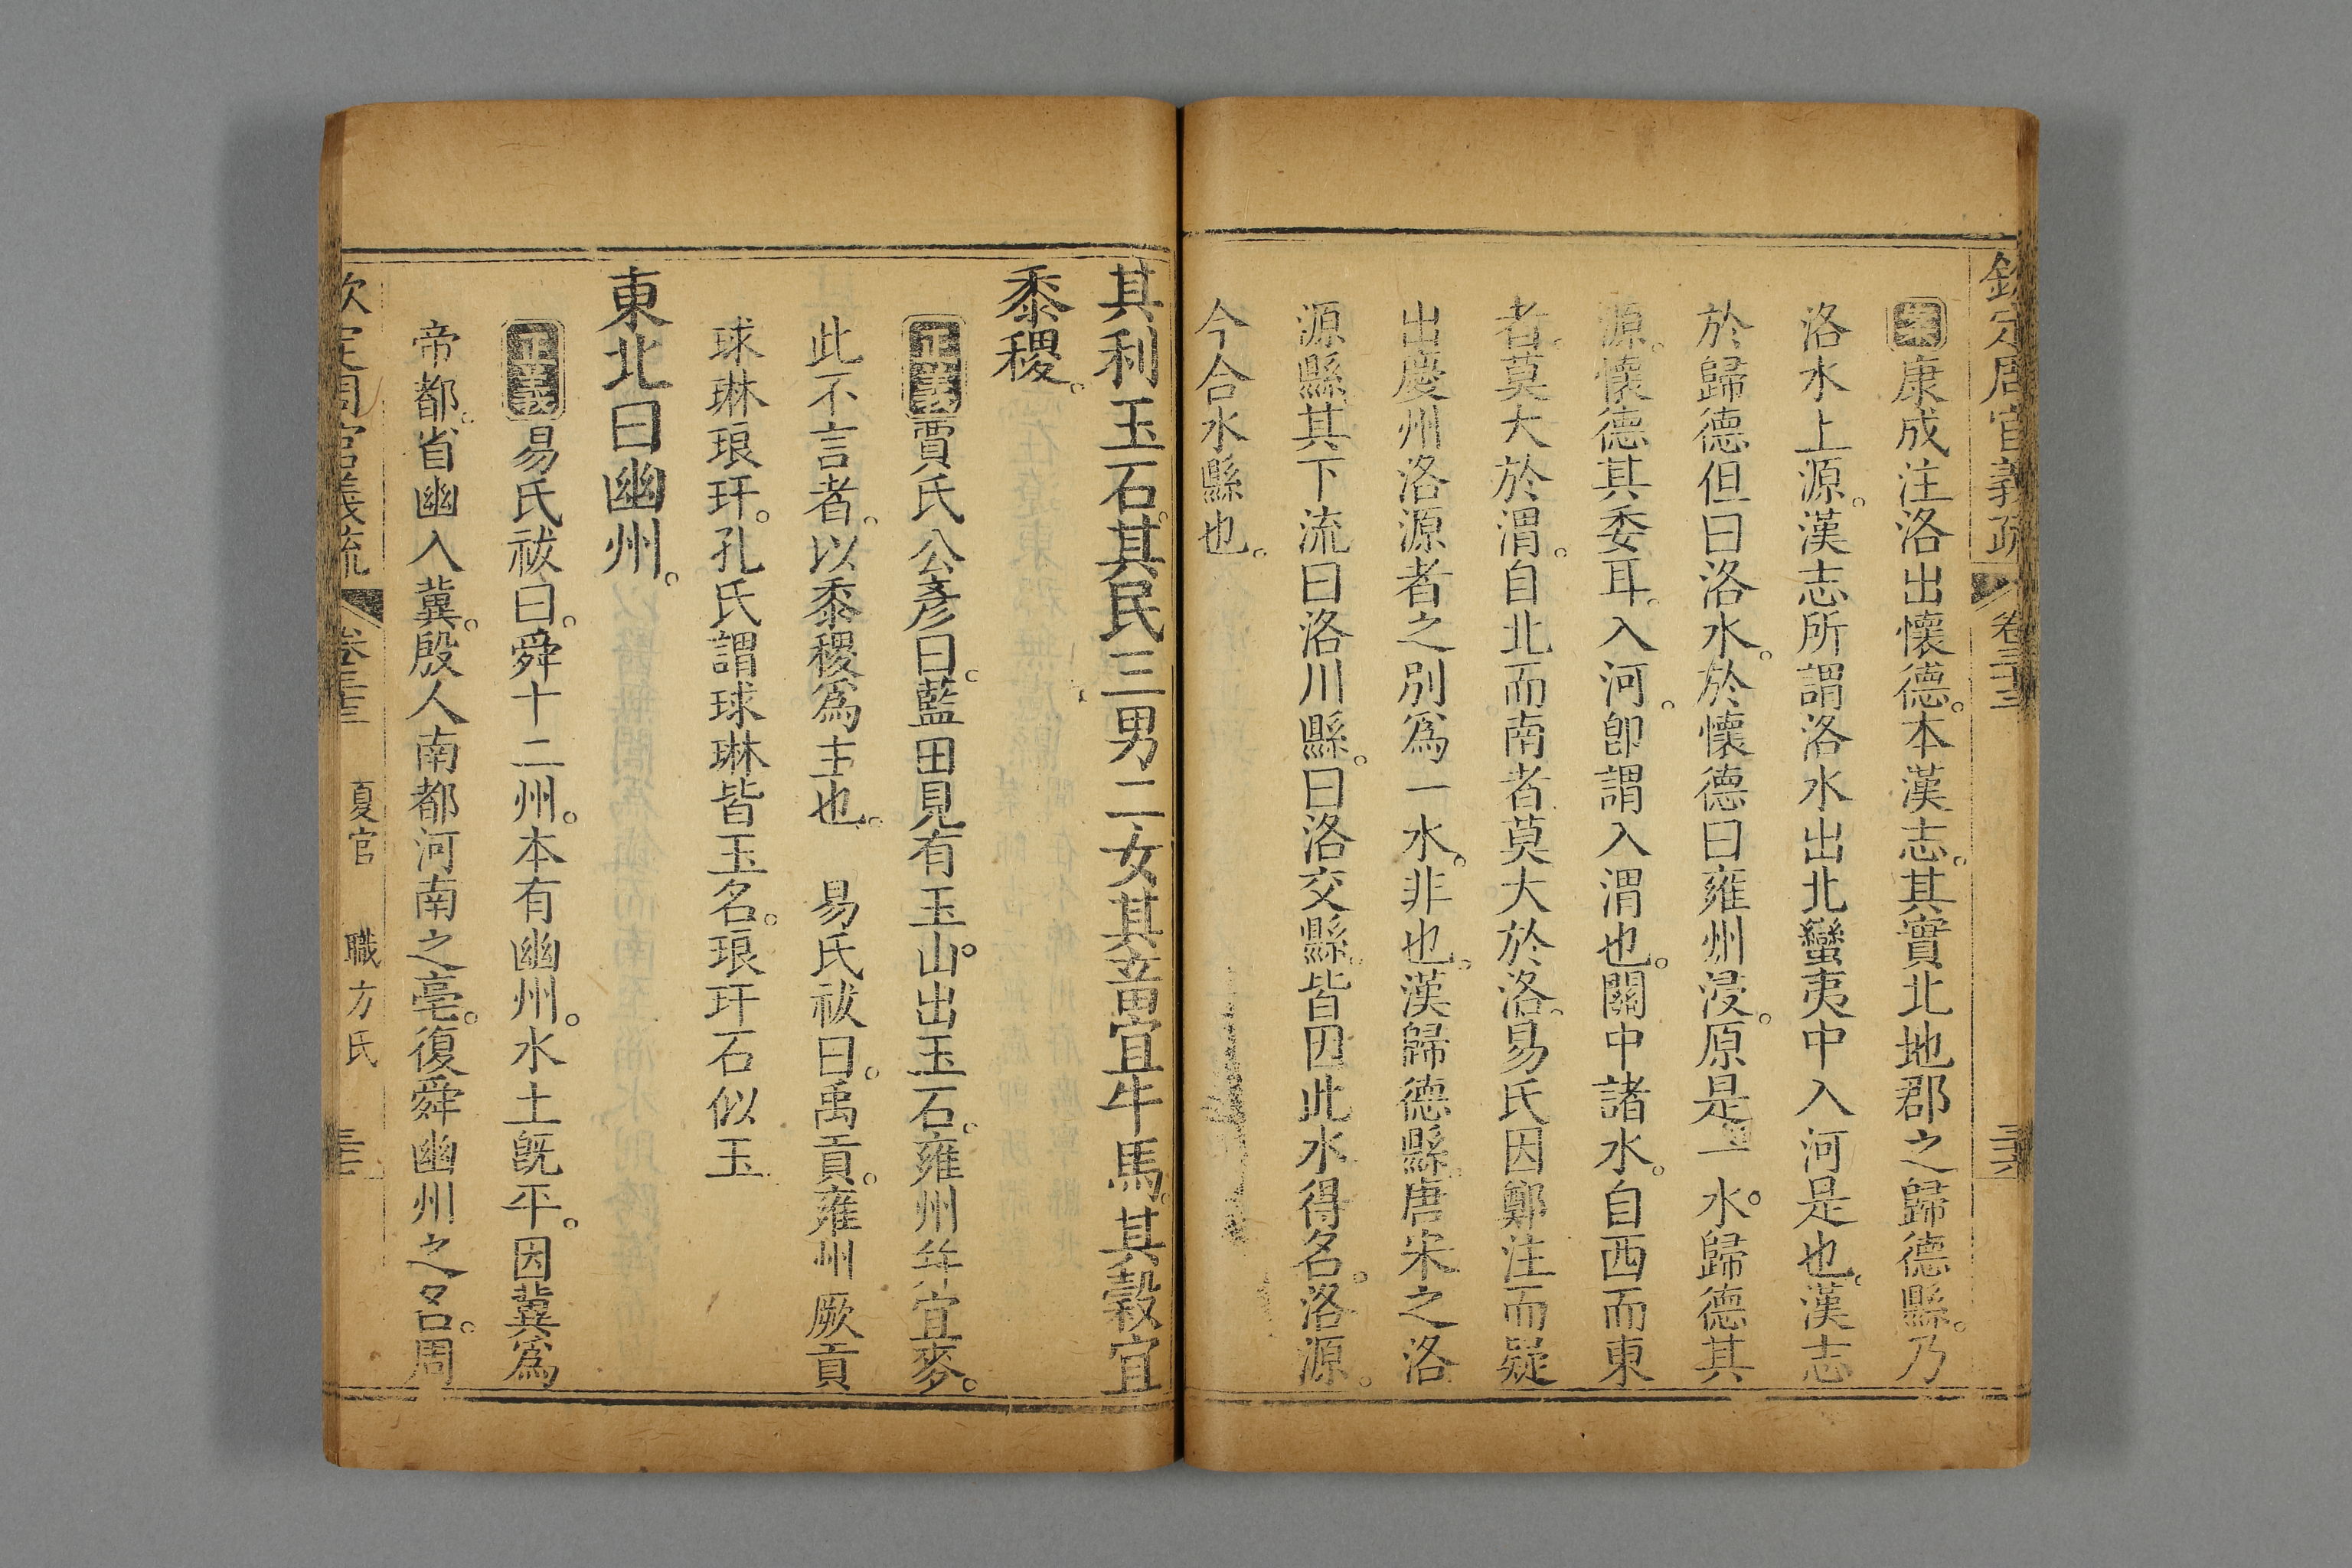 欽定周官義疏　卷三十三　三十六
案康成注洛出懷德。本漢志。其實北地郡之歸德縣。乃
洛水上源。漢志所謂洛水出北蠻夷中入河是也。漢志
於歸德但曰洛水。於懷德曰雍州浸。原是一水。歸德其
源。懷德其委耳。入河。卽謂入渭也。關中諸水。自西而東
者。莫大於渭。自北而南者莫大於洛。易氏因鄭注而疑
出慶州洛源者之別爲一水。非也。漢歸德縣。唐宋之洛
源縣其下流曰洛川縣。曰洛交縣。皆因此水得名。洛源。
今合水縣也。
其利玉石。其民三男二女其畜宜牛馬。其穀宜
黍稷。
正義賈氏公彥曰。藍田見有玉。山出玉石。雍州兼宜麥。
此不言者。以黍稷爲主也。　易氏祓曰。禹貢。雍州厥貢
球琳琅玕。孔氏謂球琳皆玉名。琅玕石似玉
東北曰幽州。
正義易氏祓曰。舜十二州。本有幽州。水土旣平。因冀爲
帝都。省幽入冀。殷人南都河南之亳。復舜幽州之名。周
欽定周官義疏　卷三十三　夏官　職方氏